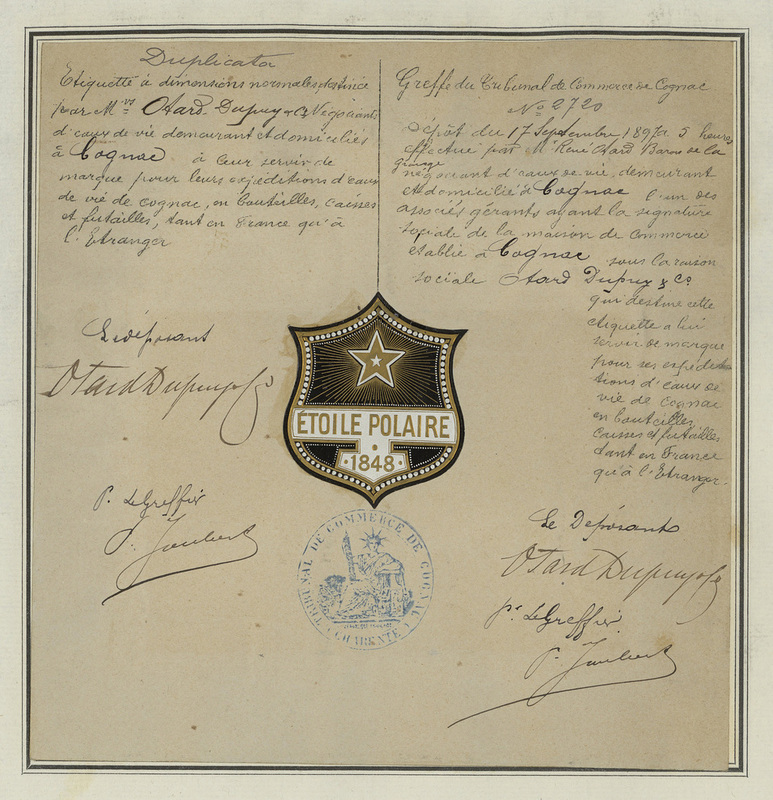 Duplicata
Etiquette à dimensions normales, destinée
par Mrs Otard Dupuy & Co Négociants
d'eaux de vie demeurant et domiciliés
à Cognac à leur servir de
marque pour leurs expéditions d'eaux
de vie de cognac, en bouteilles, caisses
et futailles, tant en France qu'à
l'Etranger
Le déposant
Otard Dupuy & Co
P. Le Greffier
P. Joubert
Greffe du Tribunal de Commerce de Cognac
No 2720
Dépôt du 17 Septembre 1897 à 5 heures
effectué par Mr René Otard Baron de la
Grange
négociant d'eaux de vie, demeurant
et domicilié à Cognac l'un des
associés gérants ayant la signature
sociale de la maison de commerce
établie à Cognac sous la raison
sociale Otard Dupuy & Co
qui destine cette
étiquette à lui
servir de marque
pour ses expédi
tions d'eaux de
vie de cognac
en bouteilles,
caisses et futailles
tant en France
qu'à l'Etranger.
Le Déposant
Otard Dupuy & Co
Pr Le Greffier
P. Joubert
ÉTOILE POLAIRE
1848
TRIBUNAL DE COMMERCE DE COGNAC
CHARENTE